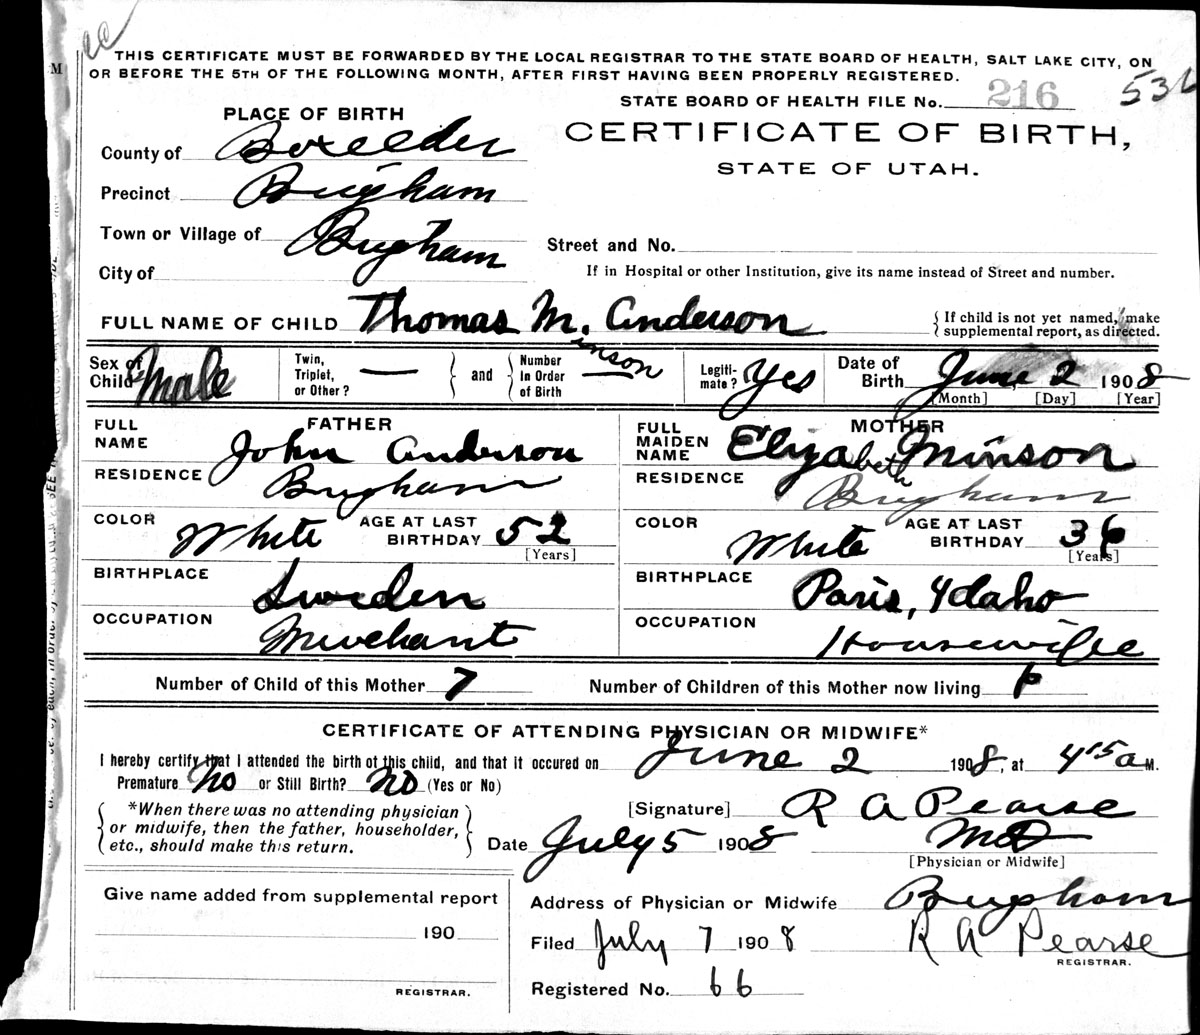 THIS CERTIFICATE MUST BE FORWARDED BY THE LOCAL REGISTRAR TO THE STATE BOARD OF HEALTH, SALT LAKE CITY, ON
OR BEFORE THE 5TH OF THE FOLLOWING MONTH, AFTER FIRST HAVING BEEN PROPERLY REGISTERED.
STATE BOARD OF HEALTH FILE No. 216 536
PLACE OF BIRTH
CERTIFICATE OF BIRTH,
STATE OF UTAH.
County of Boxelder
Precinct Brigham
Town or Village of Brigham
Street and No.
City of
If in Hospital or other Institution, give its name instead of Street and number.
FULL NAME OF CHILD Thomas M. Anderson
inson
{ If child is not yet named, make
supplemental report, as directed.
Sex of Child Male
Twin, Triplet, or Other? —
} and {
Number in Order of Birth
Legiti-mate? Yes
Date of Birth June 2 1908
[Month] [Day] [Year]
FATHER
FULL NAME John Anderson
RESIDENCE Brigham
COLOR White AGE AT LAST BIRTHDAY 52
[Years]
BIRTHPLACE Sweden
OCCUPATION Merchant
MOTHER
FULL MAIDEN NAME Elizabeth Minson
RESIDENCE Brigham
COLOR White AGE AT LAST BIRTHDAY 36
[Years]
BIRTHPLACE Paris, Idaho
OCCUPATION Housewife
Number of Child of this Mother 7 Number of Children of this Mother now living 6
CERTIFICATE OF ATTENDING PHYSICIAN OR MIDWIFE*
I hereby certify that I attended the birth of this child, and that it occured on June 2 1908, at 4 15 a M.
Premature No or Still Birth? No (Yes or No)
*When there was no attending physician
or midwife, then the father, householder,
etc., should make this return.
[Signature] R A Pearse
Date July 5 1908 MD
[Physician or Midwife]
Give name added from supplemental report
190
REGISTRAR.
Address of Physician or Midwife Brigham
Filed July 7 1908 R A Pearse
REGISTRAR.
Registered No. 66